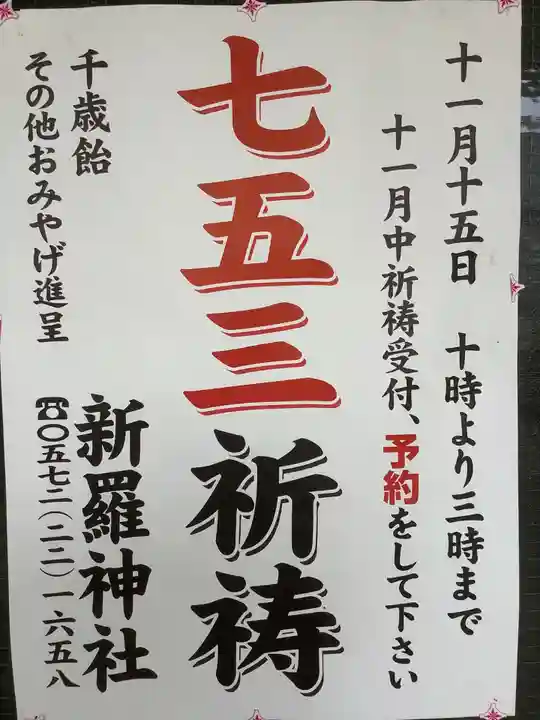 十一月十五日　十時より三時まで
十一月中祈祷受付、予約をして下さい
七五三祈祷
千歳飴
その他おみやげ進呈
新羅神社
☎〇五七二(二二)一六五八